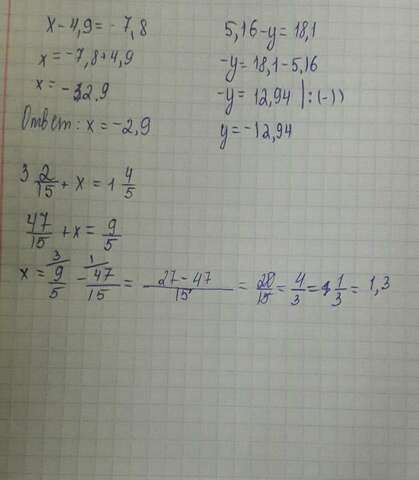 x - 4,9 = -7,8
x = -7,8 + 4,9
x = -2,9
Ответ: x = -2,9
5,16 - y = 18,1
-y = 18,1 - 5,16
-y = 12,94 | : (-1)
y = -12,94
3 2/15 + x = 1 4/5
47/15 + x = 9/5
x = 9/5 - 47/15 = 27 - 47/15 = 20/15 = 4/3 = 1 1/3 = 1,3